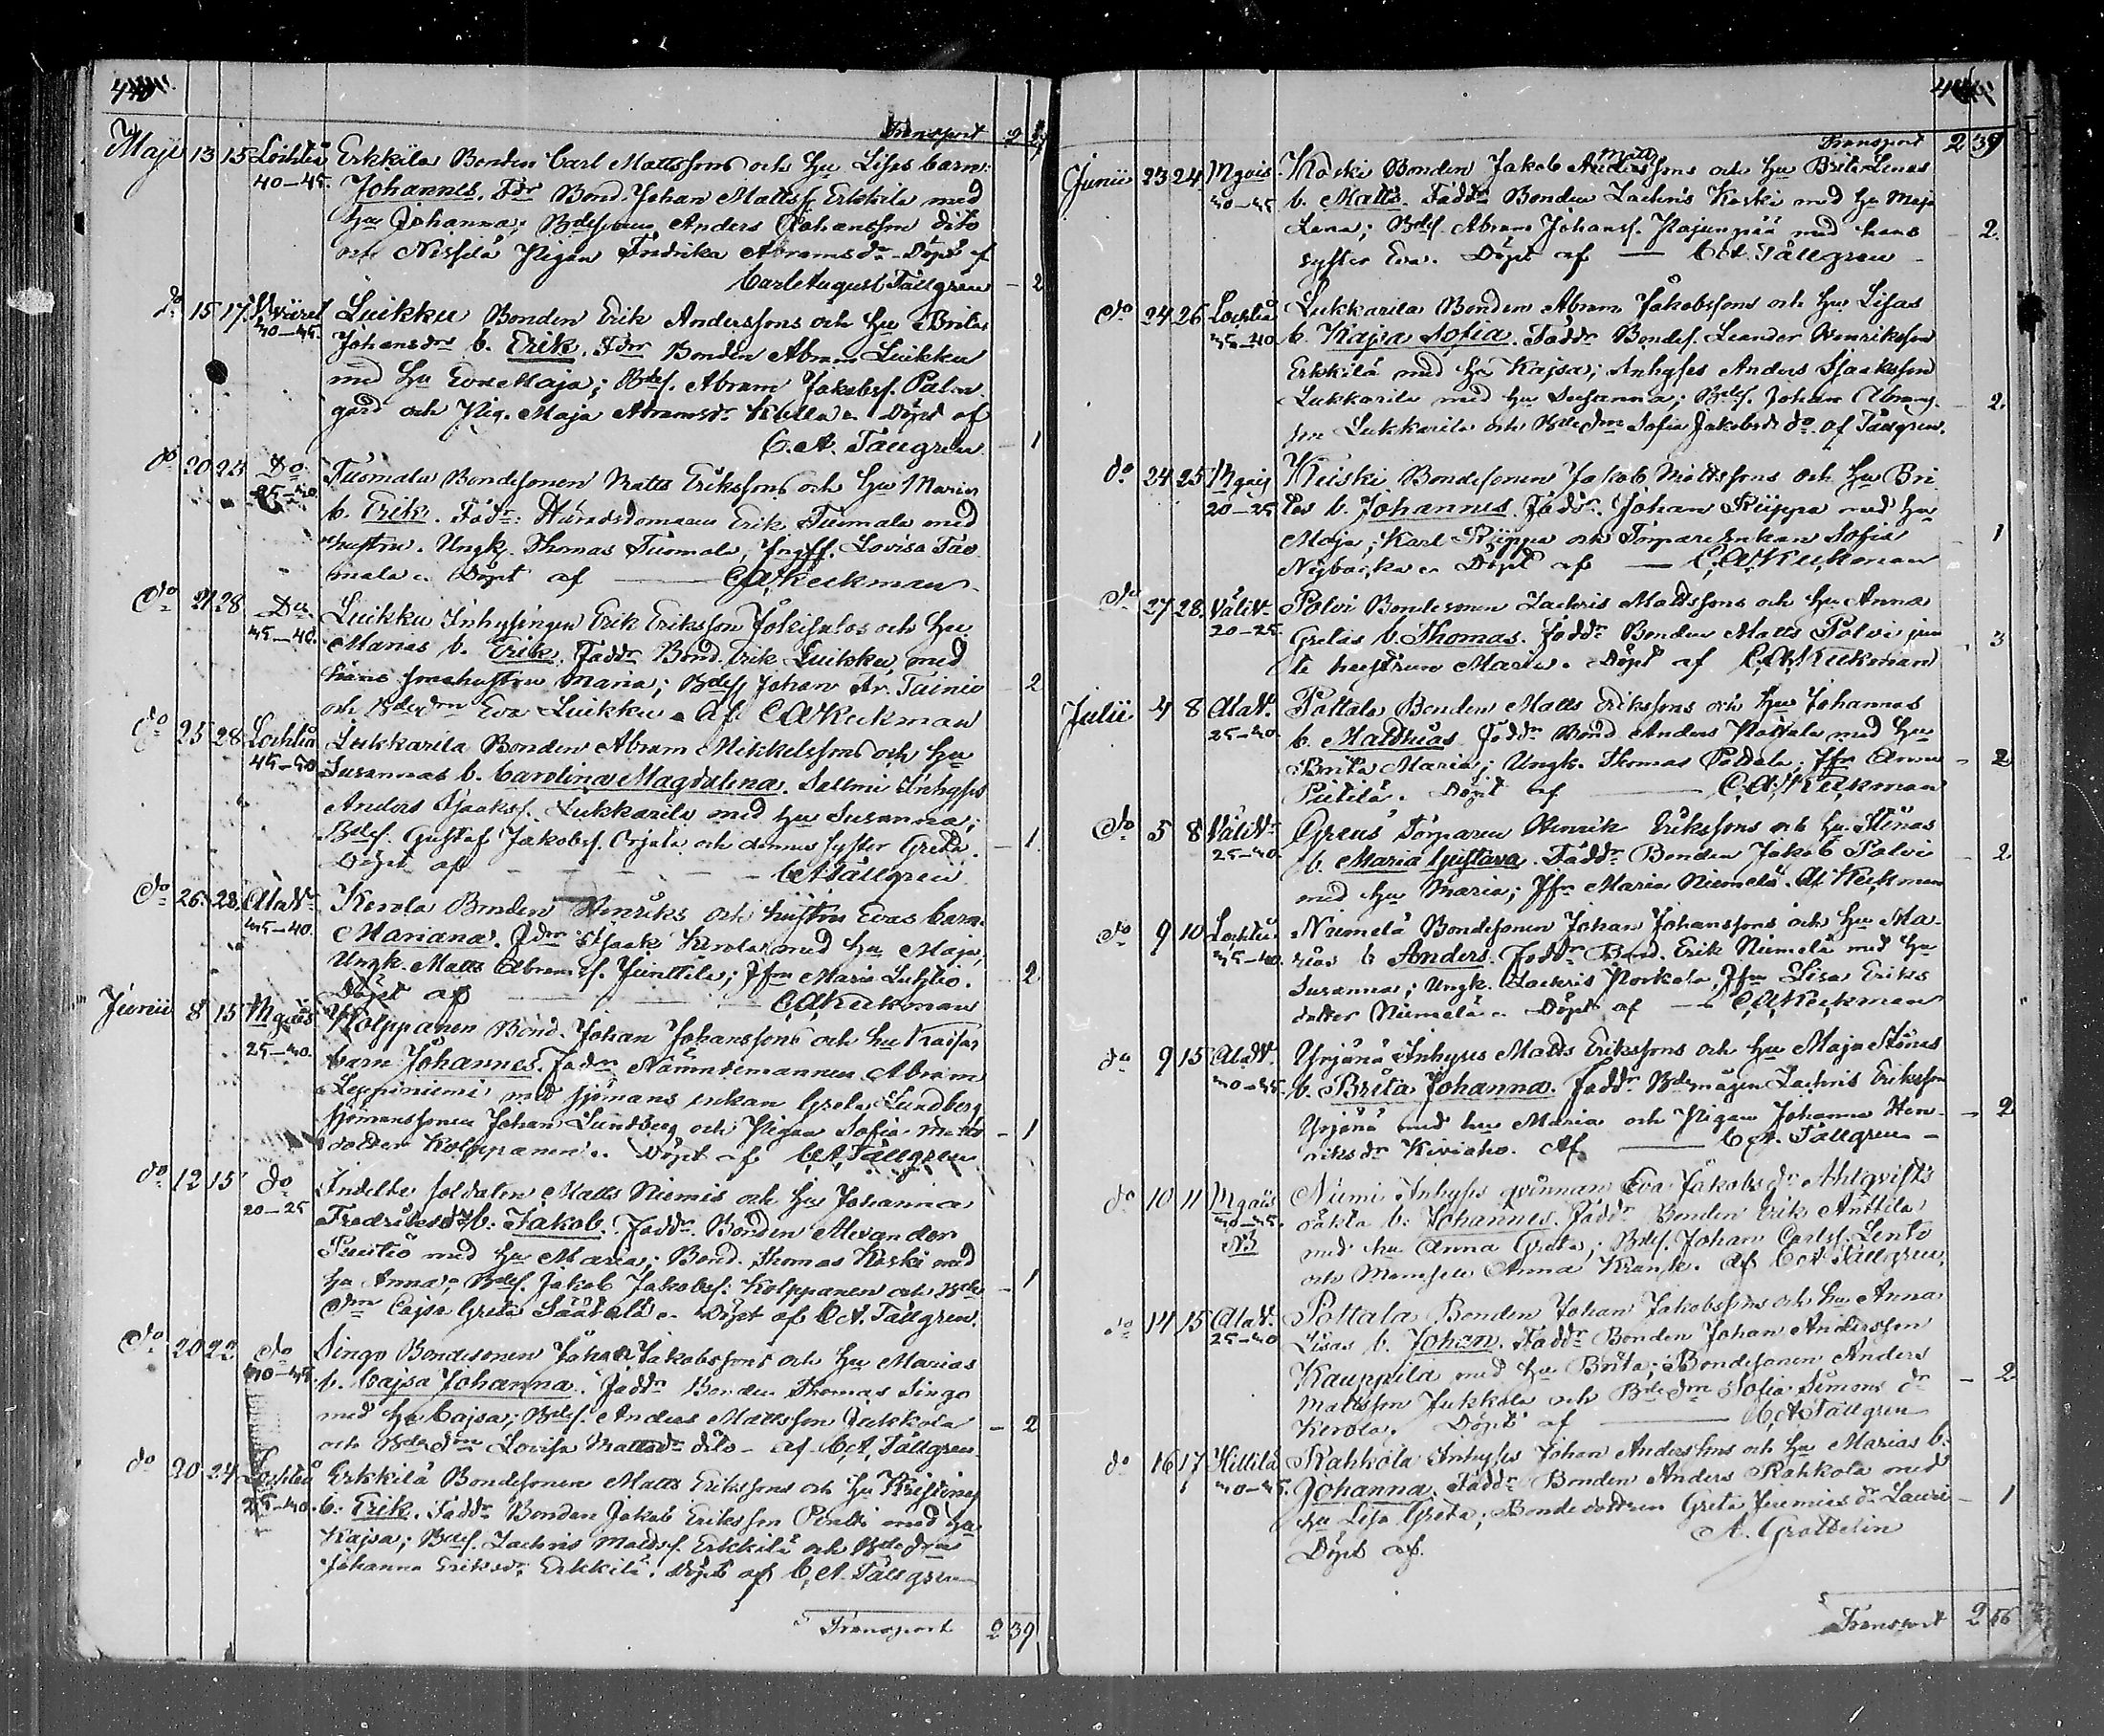 Transport 2
Maji 13 15 Lochteå Erkkilä Bonden Carl Mattssons och Hu Lisas barn:
40–45. Johannes. Fdr Bond. Johan Mattss. Erkkilä med
Hu Johanna; Bdesonen Anders Johansson dito
och Nissilä Pigan Fredrika Abramsdr. Döpt af
Carl August Tällgren – 2
do 15 17 Luikku Bonden Erik Anderssons och Hu Britas
40–45. Johansdrs b. Erik. Fdr Bonden Abram Luikku
med Hu Eva Maja; Bdes. Abram Jakobss. Palo-
gård och Pig. Maja Abramsdr Kulla. Döpt af
C. A. Tällgren – 1
do 20 24 Do Tuomala Bondesonen Matts Erikssons och Hu Marias
35–40. b. Erik. Faddr: Häradsdomaren Erik Tuomala med
hustru. Ungk. Thomas Tuomala, Jungf. Lovisa Tuo-
mala. Döpt af — C A Keckman
do 21 28 Do Luikku Inhysingen Erik Eriksson och Hu
35–40. Marias b. Erik. Faddr Bond. Erik Luikku med
hans sonehustru Maria; Bdes. Johan Ar. Tainio
och Bdedrn Eva Luikku. Af C A Keckman 2
do 25 28 Lochteå Lukkarila Bonden Abram Mikkelssons och Hu
45–50 Susannas b. Carolina Magdalena. Inhyses
Anders Isaakss. Lukkarila med Hu Susanna;
Bdes. Gustaf Jakobss. Orjala och dennes syster Greta.
Döpt af – C A Tällgren – 1.
do 26 28 AlaV. Kerola Bonden Henriks och hustru Evas barn
35–40. Mariana. Fdrn Isaak Kerola med Hu Maja;
Ungk. Matts Abramss. Junttila; Jfrn Maria Luhtio.
Döpt af — C A Keckman 2
Junii 8 15 Mgais Kolppanen Bond. Johan Johanssons och Hu Kaisas
25–40. barn Johannes. Faddr Nämndemannen Abram
Leppiniemi med sjömans enkan Greta Lundberg
sjömanssonen Johan Lundberg och Pigan Sofia Matts
dotter Kolppanen. Döpt af C.A. Tällgren – 1
do 12 15 do Indelte soldaten Matts Niemis och Hu Johanna
20–25 Fredriksdrs b. Jakob. Faddr. Bonden Alexander
Puutio med Hu Maria; Bond. Thomas Koski med
Hu Anna; Bdes. Jakob Jakobss. Kolppanen och Bde
drn Cajsa Greta Säätelä. Döpt af C. A. Tällgren. – 1
do 20 22 do Singo Bondesonen Johan Jakobssons och Hu Marias
40–45. b. Cajsa Johanna. Faddr Bonden Thomas Singo
med Hu Cajsa; Bdes. Anders Mattsson Jukkola
och Bdedrn Lovisa Mattsdr dito – af C. A. Tällgren – 2
do 20 24 Lochteå Erkkilä Bondesonen Matts Erikssons och Hu Kristinas
35–40. b. Erik. Faddr Bonden Jakob Eriksson med Hu
Kajsa; Bdes. Zachris Mattss. Erkkilä och Bdedrn
Johanna Eriksdr. Erkkilä. Döpt af C. A. Tällgren
Transport 2 39
Transport 2 39
Junii 23 24 Mgais Koski Bonden Jakob Matts sons och Hu Brita Lenas
40–45 b. Matts. Faddr Bonden Zachris Koski med Hu Maja
Lena; Bdes. Abram Johanss. Pajunpää med hans – 2.
syster Eva. Döpt af — C A. Tällgren
do 24 26 Lochteå Lukkarila Bonden Abram Jakobssons och Hu Lisas
35–40 b. Kajsa Sofia. Faddr Bondes. Leander Henriksson
Erkkilä med Hu Kajsa; Inhyses Anders Isaaksson
Lukkarila med Hu Susanna; Bdes. Johan Abrams-
son Lukkarila och Bdedrn Sofia Jakobsdr do af Tällgren. – 2.
do 24 25 Mgais Keiski Bondesonen Jakob Mattssons och Hu Bri
20–25 tas b. Johannes. Faddr. Johan Riippa med Hu
Maja; Karl Riippa och Torpare Enkan Sofia – 1
Nybacka. Döpt af — C. A. Keckman
do 27 28 VäliV. Polvi Bondesonen Zachris Mattssons och Hu Anna
20–25. Gretas b. Thomas. Faddr Bonden Matts Polvi jem
te hustrun Maria. Döpt af C. A. Keckman – 3
Julii 4 8 AlaV. Pottala Bonden Matts Erikssons och Hu Johannas
25–40. b. Matthias. Faddr Bond Anders Pottala med Hu
Brita Maria; Ungk. Thomas Pottala; Jfrn Anna – 2
Piitilä. Döpt af — C. A. Keckman
do 5 8 VäliV. Greus Torparen Henrik Erikssons och Hu Stinas
25–40. b. Maria Gustava. Faddr Bonden Jakob Polvi – 2
med Hu Maria; Jfrn Maria Niemelä. Af Keckman
do 9 10 Lochteå. Niemelä Bondesonen Johan Johanssons och Hu Ma-
35–40. rias b. Anders. Faddr Bond. Erik Niemelä med Hu
Susanna; Ungk. Zachris Porkola, Jfrn Lisa Eriks
dotter Niemelä. Döpt af — C. A. Keckman
do 9 15 AlaV. Yrjänä Inhyses Matts Erikssons och Hu Maja Stinas
40–45. b. Brita Johanna. Faddr Bdemågen Zachris Eriksson
Yrjänä med hu Maria och Pigan Johanna Hen- – 2
riksdr Kiviaho. Af — C. A. Tällgren –
do 10 11 Mgais Niemi Inhyses qvinnan Eva Jakobsdr Ahlqvists
40–45. oäkta b. Johannes. Faddr Bonden Erik Anttila
NB med hu Anna Greta; Bdes. Johan Carlss. Lento
och Mamsell Anna Krank. Af C A Tällgren.
do 14 15 AlaV. Pottala Bonden Johan Jakobssons och hu Anna
25–40 Lisas b. Johan. Faddr Bonden Johan Andersson
Kauppila med Hu Brita; Bondesonen Anders
Mattsson Jukkola och Bdedrn Sofia Simons dr – 2
Kerola. Döpt af — C. A. Tällgren
do 16 17 Kittilä Rahkola Inhyses Johan Anderssons och Hu Marias b.
40–45. Johanna. Faddr Bonden Anders Rahkola med
Hu Lisa Greta; Bondedottren Greta Jeremias dr Lauri – 1
Döpt af. A. Grottelin
Transport 2 56